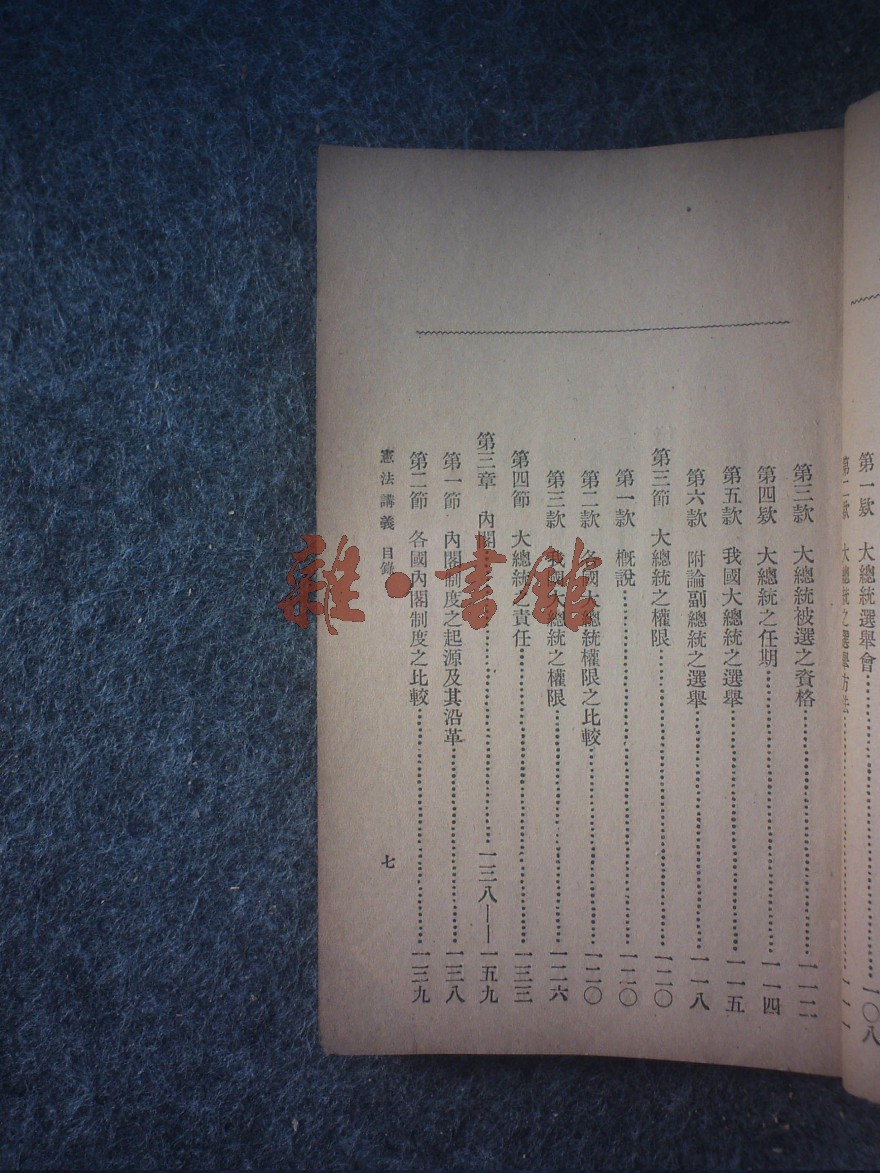 第一款　大總統選舉會……一〇八
第二款　大總統之選舉方法……一一一
第三款　大總統被選之資格……一一二
第四款　大總統之任期……一一四
第五款　我國大總統之選舉……一一五
第六款　附論副總統之選舉……一一八
第三節　大總統之權限……一二〇
第一款　概說……一二〇
第二款　各國大總統權限之比較……一二〇
第三款　我國大總統之權限……一二六
第四節　大總統之責任……一三三
第三章　內閣……一三八——一五九
第一節　內閣制度之起源及其沿革……一三八
第二節　各國內閣制度之比較……一三九
憲法講義　目錄　七
雜·書館